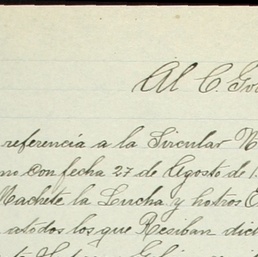 Al C. Go
referencia a la Circular N
con fecha 27 de Agosto de 1
Machete la Lucha y hotros C
atodos los que Reciban dic